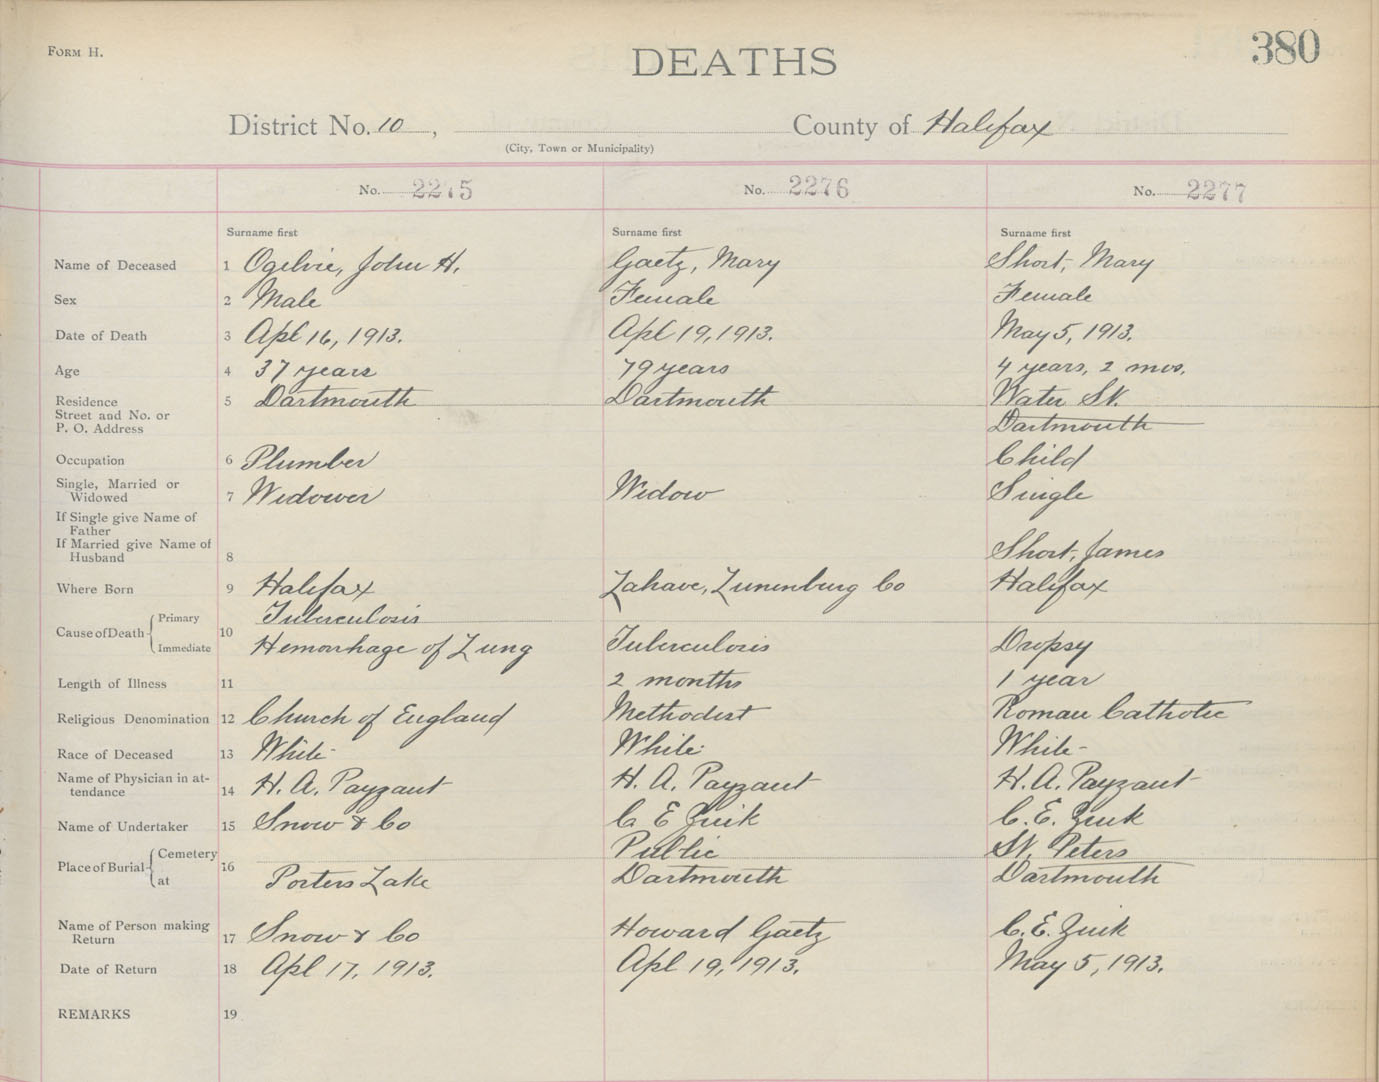 FORM H.
DEATHS
380
District No. 10, County of Halifax
(City, Town or Municipality)
No. 2275 No. 2276 No. 2277
Surname first Surname first Surname first
Name of Deceased 1 Ogilvie, John H. Gaetz, Mary Short, Mary
Sex 2 Male Female Female
Date of Death 3 Apl 16, 1913. Apl 19, 1913. May 5, 1913.
Age 4 37 years 79 years 4 years, 2 mos.
Residence 5 Dartmouth Dartmouth Water St.
Street and No. or
P. O. Address Dartmouth
Occupation 6 Plumber Child
Single, Married or
Widowed 7 Widower Widow Single
If Single give Name of
Father
If Married give Name of
Husband 8 Short, James
Where Born 9 Halifax Lahave, Lunenburg Co Halifax
Cause of Death Primary Tuberculosis
10
Immediate Hemorrhage of Lung Tuberculosis Dropsy
Length of Illness 11 2 months 1 year
Religious Denomination 12 Church of England Methodist Roman Catholic
Race of Deceased 13 White White White
Name of Physician in at-
tendance 14 H. A. Payzant H. A. Payzant H. A. Payzant
Name of Undertaker 15 Snow & Co C E Zink C. E. Zink
Place of Burial Cemetery Public St. Peters
16
at Porters Lake Dartmouth Dartmouth
Name of Person making
Return 17 Snow & Co Howard Gaetz C. E. Zink
Date of Return 18 Apl 17, 1913. Apl 19, 1913. May 5, 1913.
REMARKS 19